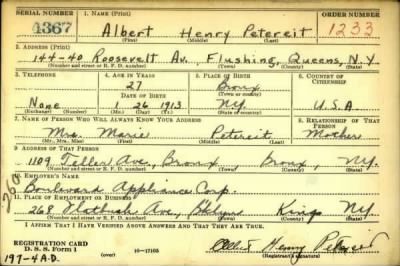 SERIAL NUMBER 1. NAME (Print) ORDER NUMBER
4367 Albert Henry Petereit 1233
(First) (Middle) (Last)
2. ADDRESS (Print)
144-40 Roosevelt Av., Flushing, Queens, N.Y.
(Number and street or R. F. D. number) (Town) (County) (State)
3. TELEPHONE 4. AGE IN YEARS 5. PLACE OF BIRTH 6. COUNTRY OF CITIZENSHIP
27 Bronx
DATE OF BIRTH (Town or county)
None 1 26 1913 NY. U.S.A
(Exchange) (Number) (Mo.) (Day) (Yr.) (State or country)
7. NAME OF PERSON WHO WILL ALWAYS KNOW YOUR ADDRESS 8. RELATIONSHIP OF THAT PERSON
Mrs. Marie Petereit Mother
(Mr., Mrs., Miss) (First) (Middle) (Last)
9. ADDRESS OF THAT PERSON
1109 Teller Ave, Bronx Bronx, NY.
(Number and street or R. F. D. number) (Town) (County) (State)
10. EMPLOYER'S NAME
Boulevard Appliance Corp.
11. PLACE OF EMPLOYMENT OR BUSINESS
268 Flatbush Ave, Bklyn Kings NY.
(Number and street or R. F. D. number) (Town) (County) (State)
I AFFIRM THAT I HAVE VERIFIED ABOVE ANSWERS AND THAT THEY ARE TRUE.
REGISTRATION CARD
D. S. S. Form 1 (over) 16-17105 Albert Henry Petereit
(Registrant's signature)
197-4A.D.